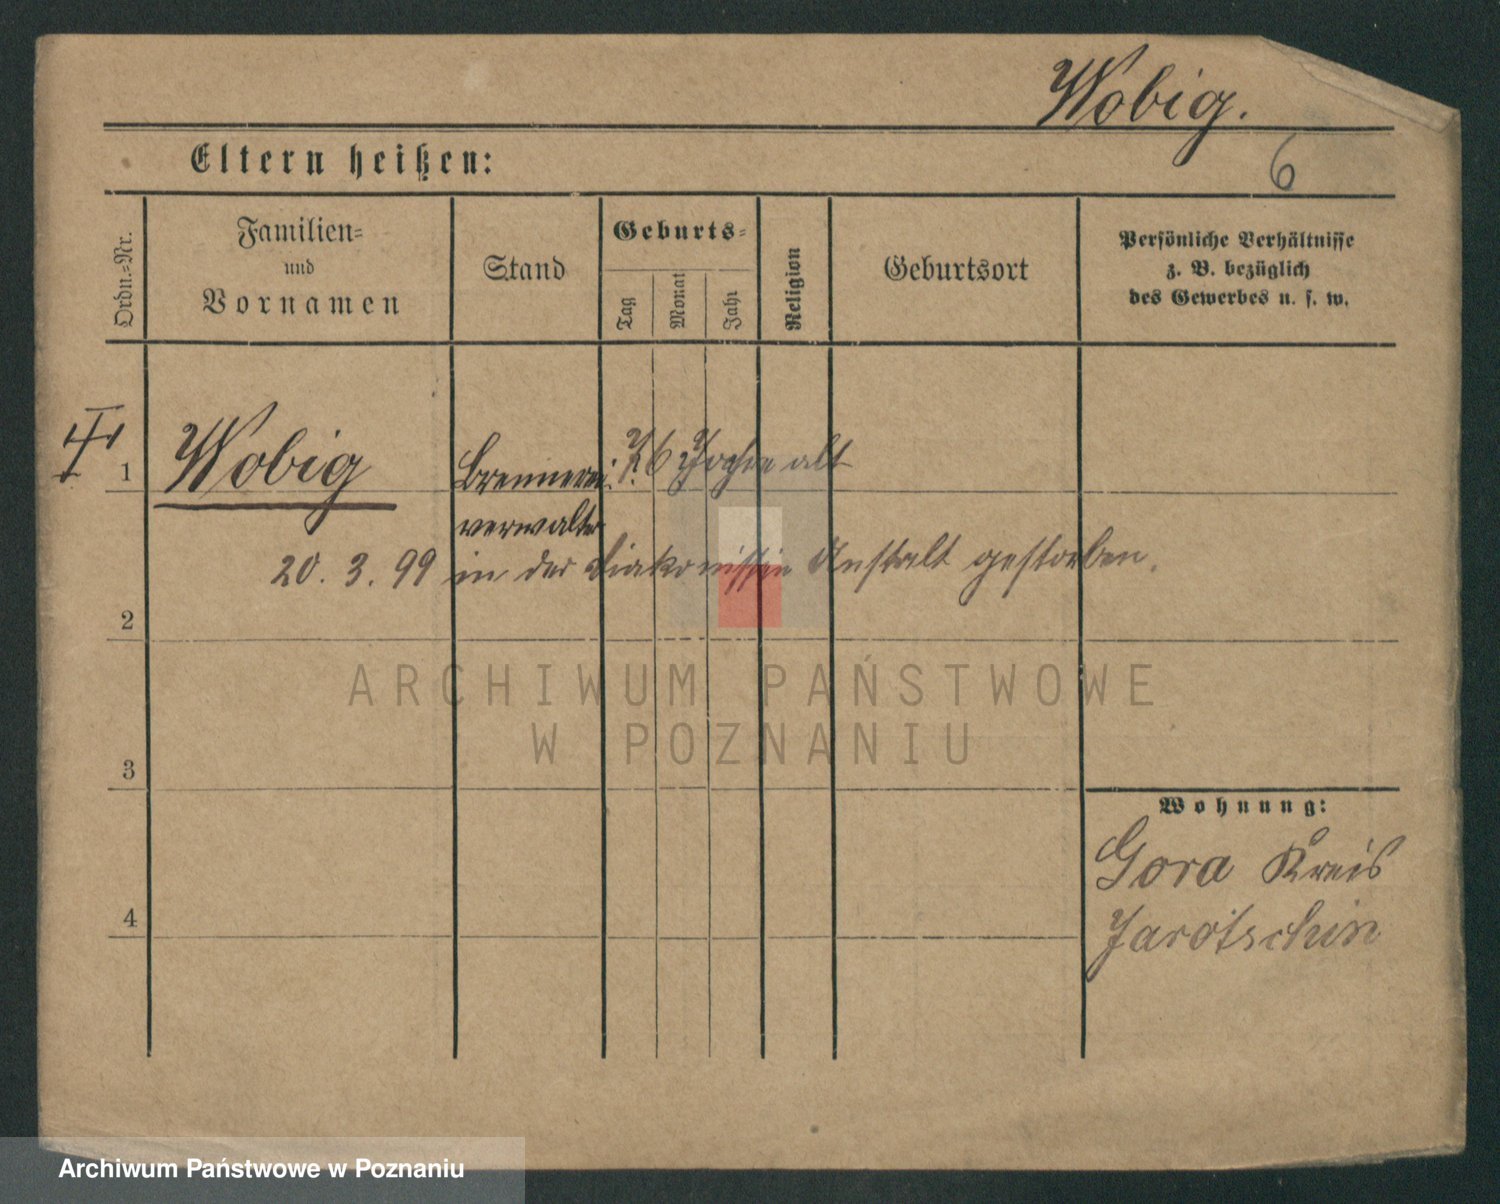 Wobig.
Eltern heißen:
6
Ordn.=Nr.
Familien=
und
Vornamen
Stand
Geburts=
Tag
Monat
Jahr
Religion
Geburtsort
Persönliche Verhältnisse
z. B. bezüglich
des Gewerbes u. s. w.
1
Wobig
Brennerei
76 Jahre alt
verwalter
20. 3. 99 in der Diakonissen Anstalt gestorben.
2
ARCHIWUM PAŃSTWOWE
W POZNANIU
3
Wohnung:
Gora Kreis
4
Jarotschin
Archiwum Państwowe w Poznaniu